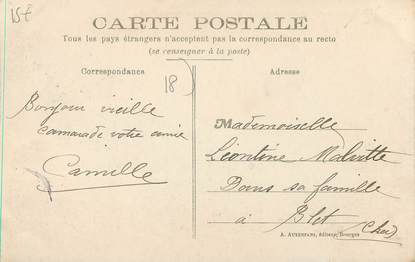 15€
CARTE POSTALE
Tous les pays étrangers n'acceptent pas la correspondance au recto
(se renseigner à la poste)
Correspondance
Adresse
18)
Bonjour vieille
camarade votre amie
Camille
Mademoiselle
Léontine Malvitte
Dans sa famille
à Blet
(Cher)
A. AUXENFANS, éditeur, Bourges